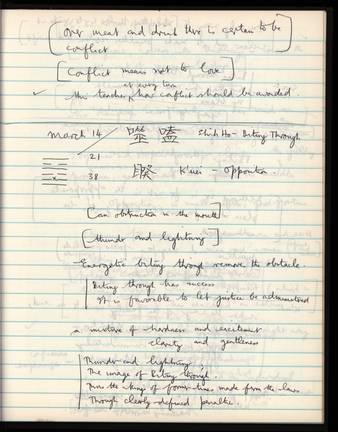 [Over meat and drink there is certain to be
conflict]
[Conflict means not to love]
at every turn
✓ the teacher, how conflict should be avoided.
March 14 噬 嗑 Shih Ho - Biting Through
21
38 睽 K'uei - Opposition.
[an obstruction in the mouth]
[thunder and lightning]
- Energetic biting through remove the obstacle
Biting through has success
It is favorable to let justice be administered
a mixture of hardness and excitement
clarity and gentleness
Thunder and lightning:
The image of Biting through.
Thus the kings of former times made firm the laws
Through clearly defined penalties.